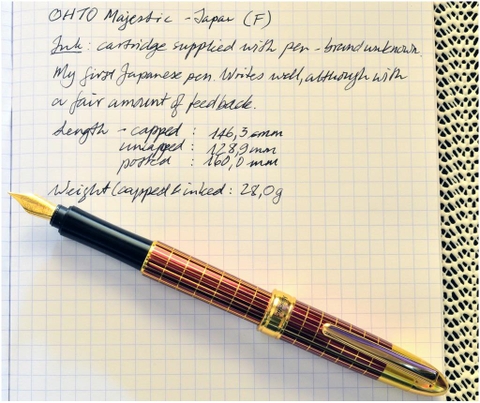 OHTO Majestic - Japan (F)
Ink: cartridge supplied with pen - brand unknown.
My first Japanese pen. Writes well, although with
a fair amount of feedback.
Length - capped : 146,3 mm
uncapped : 128,9 mm
posted : 160,0 mm
Weight (capped & inked : 28,0g